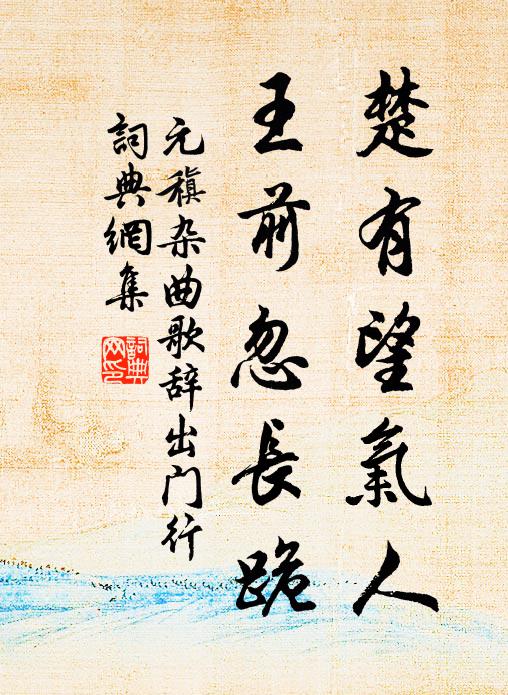 楚有望氣人
王前忽長跪
元稹杂曲歌辞出门行
詞典網集
詞典
网印